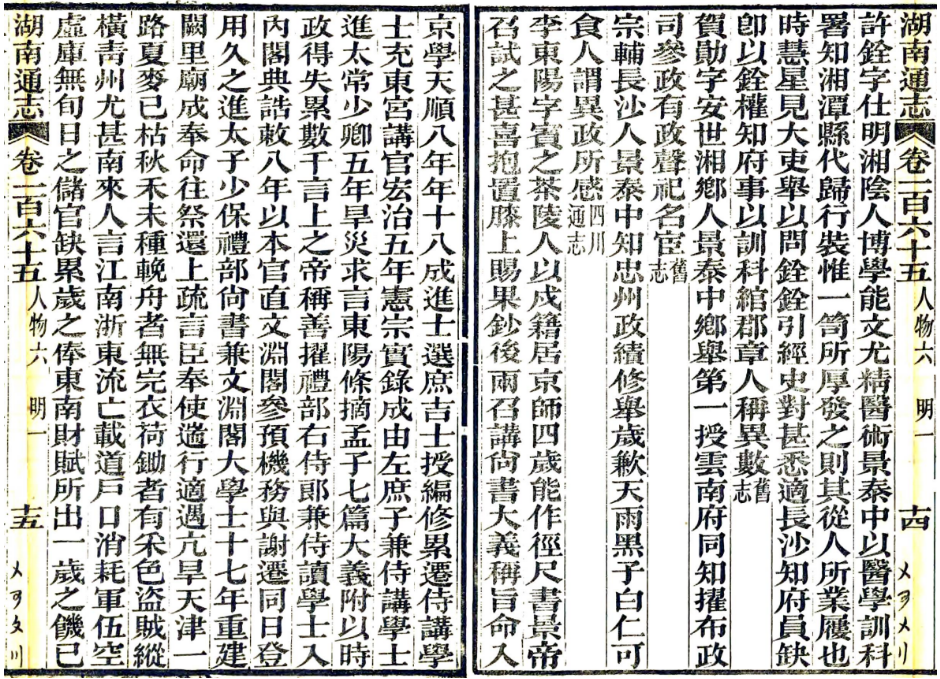 湖南通志 卷一百六十五 人物六 明一 十四
許銓字仕明湘陰人博學能文尤精醫術景泰中以醫學訓科
署知湘潭縣代歸行裝惟一笥所厚發之則其從人所業屨也
時慧星見大吏舉以問銓銓引經史對甚悉適長沙知府員缺
卽以銓權知府事以訓科綰郡章人稱異數舊志
賀勛字安世湘鄉人景泰中鄉舉第一授雲南府同知擢布政
司參政有政聲祀名宦舊志
宗輔長沙人景泰中知忠州政績修舉歲歉天雨黑子白仁可
食人謂異政所感四川通志
李東陽字賓之茶陵人以戍籍居京師四歲能作徑尺書景帝
召試之甚喜抱置膝上賜果鈔後兩召講尚書大義稱旨命入
京學天順八年年十八成進士選庶吉士授編修累遷侍講學
士充東宮講官宏治五年憲宗實錄成由左庶子兼侍講學士
進太常少卿五年旱災求言東陽條摘孟子七篇大義附以時
政得失累數千言上之帝稱善擢禮部右侍郎兼侍讀學士入
內閣典誥敕八年以本官直文淵閣參預機務與謝遷同日登
用久之進太子少保禮部尚書兼文淵閣大學士十七年重建
闕里廟成奉命往祭還上疏言臣奉使遄行適遇亢旱天津一
路夏麥已枯秋禾未種輓舟者無完衣荷鋤者有菜色盜賊縱
橫青州尤甚南來人言江南浙東流亡載道戶口消耗軍伍空
虛庫無旬日之儲官缺累歲之俸東南財賦所出一歲之饑已
湖南通志 卷一百六十五 人物六 明一 十五